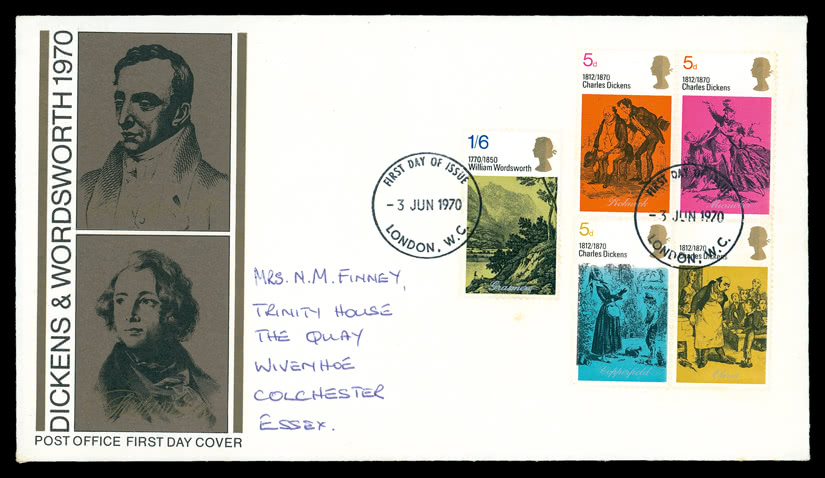 DICKENS & WORDSWORTH 1970
POST OFFICE FIRST DAY COVER
MRS. N. M. FINNEY,
TRINITY HOUSE
THE QUAY
WIVENHOE
COLCHESTER
ESSEX.
1/6
1770/1850
William Wordsworth
Grasmere
FIRST DAY OF ISSUE
- 3 JUN 1970
LONDON, W.C.
5d
1812/1870
Charles Dickens
Pickwick
5d
1812/1870
Charles Dickens
Micawber
5d
1812/1870
Charles Dickens
Copperfield
1812/1870
Charles Dickens
FIRST DAY OF ISSUE
- 3 JUN 1970
LONDON, W.C.